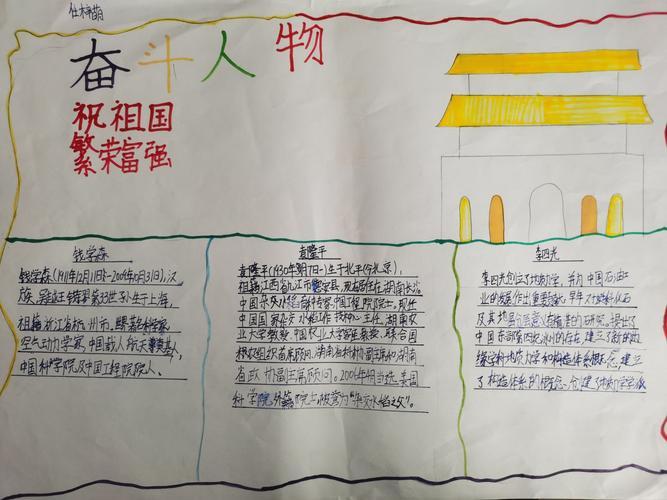 任梓萌
奋斗人物
祝祖国
繁荣富强
钱学森
钱学森(1911年12月11日-2009年10月31日),汉
族,吴越王钱镠第33世孙,生于上海,
祖籍浙江省杭州市。世界著名科学家,
空气动力学家,中国载人航天奠基人,
中国科学院及中国工程院院人。
袁隆平
袁隆平(1930年9月7日-)生于北平(今北京),
祖籍江西省九江市德安县,现在居住在湖南长沙
中国杂交水稻育种专家,中国工程院院士。现任
中国国家杂交水稻工作技术中心主任,湖南农
业大学教授,中国农业大学客座教授,联合国
粮农组织首席顾问,湖南省科协副主席和湖南
省政协副主席顾问。2006年4月当选美国
科学院外籍院士,被誉为“杂交水稻之父”。
李四光
李四光创立了地质力学,并为中国石油工
业的发展作出重要贡献,早年对蜓科化石
及其地层
的研究,提出了
中国东部第四纪冰川的存在,建立了新的边
缘学科地质力学和构造体系概念,建立
了构造体系的概念,创建了地质力学学派